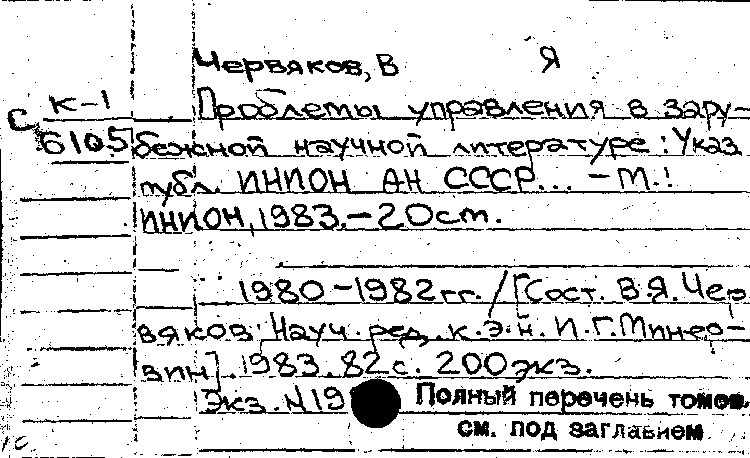 Червяков, В Я
К-1 Проблемы управления в зару-
С 6105 бежной научной литературе: Указ
публ. ИНИОН АН СССР... - М.:
ИНИОН, 1983. - 20см.
1980-1982гг. / [Сост. В.Я. Чер
вяков; Науч. ред. к.э.н. И.Г. Минер-
вин]. 1983. 82 с. 200 экз.
Экз. N19 Полный перечень томов.
см. под заглавием